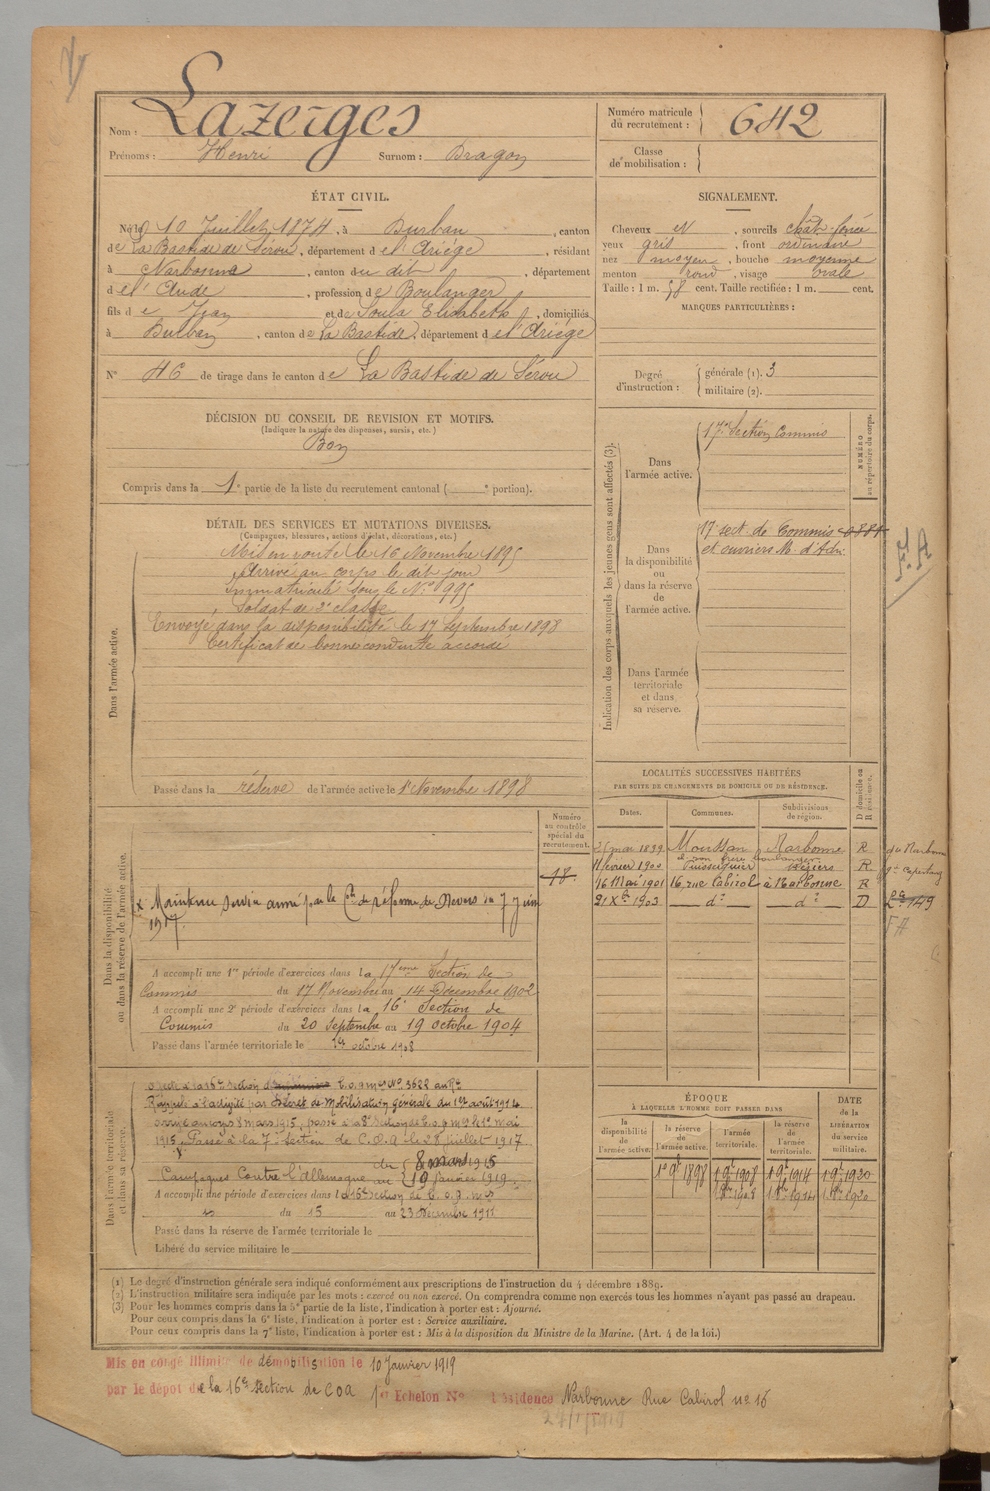 Nom : Lazerges
Prénoms : Henri Surnom : Dragon
Numéro matricule du recrutement : 642
Classe de mobilisation :
ÉTAT CIVIL.
Né le 10 Juillet 1874, à Burban, canton
de La Bastide de Sérou, département d el'Ariége, résidant
à Narbonne, canton du dit, département
d el'Aude, profession de Boulanger
fils de Jean et de Soula Elisabeth, domiciliés
à Burban, canton de La Bastide, département d el'Ariége
N° 46 de tirage dans le canton de La Bastide de Sérou
SIGNALEMENT.
Cheveux N, sourcils chât. foncé
yeux gris, front ordinaire
nez moyen, bouche moyenne
menton rond, visage ovale
Taille : 1 m. 58 cent. Taille rectifiée : 1 m. cent.
MARQUES PARTICULIÈRES :
Degré d'instruction : générale (1). 3
militaire (2).
DÉCISION DU CONSEIL DE REVISION ET MOTIFS.
(Indiquer la nature des dispenses, sursis, etc.)
Bon
Compris dans la 1e partie de la liste du recrutement cantonal ( e portion).
DÉTAIL DES SERVICES ET MUTATIONS DIVERSES.
(Campagnes, blessures, actions d'éclat, décorations, etc.)
Dans l'armée active.
Mis en route le 16 Novembre 1895
Arrivé au corps le dit jour
Immatriculé sous le N° 995
Soldat de 2e classe
Envoyé dans la disponibilité le 17 Septembre 1898
Certificat de bonne conduite accordé
Passé dans la réserve de l'armée active le 1er Novembre 1898
Indication des corps auxquels les jeunes gens sont affectés (3).
NUMÉRO au répertoire du corps.
Dans l'armée active.
17e Section Commis
Dans la disponibilité ou dans la réserve de l'armée active.
17e sect. de Commis 0881
et ouvriers M. d'Adn.
F.A
Dans l'armée territoriale et dans sa réserve.
LOCALITÉS SUCCESSIVES HABITÉES
PAR SUITE DE CHANGEMENTS DE DOMICILE OU DE RÉSIDENCE.
Dates. Communes. Subdivisions de région. D domicile ou R résidence.
mai 1899 Moussan Narbonne R de Narbonne
chez son frère boulanger
février 1900 Puisserguier Béziers R Capestang
16 Mai 1901 16, rue Cabirol à Narbonne R
21 Xbre 1903 do do D
FA
Dans la disponibilité ou dans la réserve de l'armée active.
Numéro au contrôle spécial du recrutement.
18
x Maintenu service armé par la Con de réforme de Nevers du 7 juin
1917.
A accompli une 1re période d'exercices dans la 17ème Section de
Commis du 17 Novembre au 14 Décembre 1902
A accompli une 2e période d'exercices dans la 16e Section de
Commis du 20 Septembre au 19 octobre 1904
Passé dans l'armée territoriale le 1er octobre 1908
Dans l'armée territoriale et dans sa réserve.
Affecté à la 16e Section C.o.a mre No 3622 au Rre
Rappelé à l'activité par Décret de Mobilisation Générale du 1er août 1914
Passé à la 7e Section de C.O.A le 28 juillet 1917
Campagnes Contre l'Allemagne du 8 mars 1915
au 10 Janvier 1919
A accompli une période d'exercices dans la 16e Section de C.o.a. mre
du 15 au 23 Décembre 1911
Passé dans la réserve de l'armée territoriale le
Libéré du service militaire le
ÉPOQUE
À LAQUELLE L'HOMME DOIT PASSER DANS
la disponibilité de l'armée active. la réserve de l'armée active. l'armée territoriale. la réserve de l'armée territoriale.
DATE de la LIBÉRATION du service militaire.
1er 9bre 1898 1 9bre 1908 1 9bre 1914 1 9bre 1920
(1) Le degré d'instruction générale sera indiqué conformément aux prescriptions de l'instruction du 4 décembre 1889.
(2) L'instruction militaire sera indiquée par les mots : exercé ou non exercé. On comprendra comme non exercés tous les hommes n'ayant pas passé au drapeau.
(3) Pour les hommes compris dans la 5e partie de la liste, l'indication à porter est : Ajourné.
Pour ceux compris dans la 6e liste, l'indication à porter est : Service auxiliaire.
Pour ceux compris dans la 7e liste, l'indication à porter est : Mis à la disposition du Ministre de la Marine. (Art. 4 de la loi.)
Mis en congé illimité de démobilisation le 10 Janvier 1919
par le dépôt de la 16e Section de COA 1er Echelon No Résidence Narbonne Rue Cabirol no 16